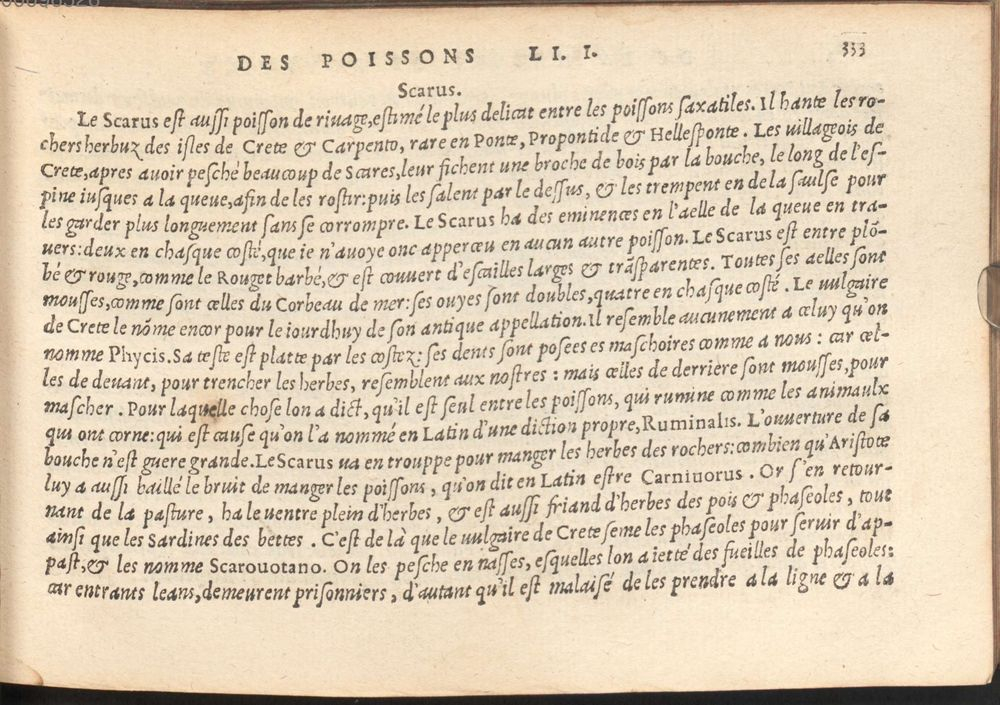 DES POISSONS LI. I. 333
Scarus.
Le Scarus est aussi poisson de riuage,estimé le plus delicat entre les poissons saxatiles. Il hante les ro-
chers herbuz des isles de Crete & Carpento, rare en Ponte, Propontide & Hellesponte. Les uillageois de
Crete,apres auoir pesché beaucoup de Scares,leur fichent une broche de bois par la bouche, le long de l'es-
pine iusques a la queue,afin de les rostir:puis les salent par le dessus, & les trempent en de la saulse pour
les garder plus longuement sans se corrompre. Le Scarus ha des eminences en l'aelle de la queue en tra-
uers:deux en chasque costé,que ie n'auoye onc apperceu en aucun autre poisson. Le Scarus est entre plō-
bé & rouge,comme le Rouget barbé,& est couuert d'escailles larges & trãsparentes. Toutes ses aelles sont
mousses,comme sont celles du Corbeau de mer: ses ouyes sont doubles,quatre en chasque costé. Le uulgaire
de Crete le nõme encor pour le iourdhuy de son antique appellation.Il resemble aucunement a celuy qu'on
nomme Phycis.Sa teste est platte par les costez: ses dents sont posees es maschoires comme a nous : car cel-
les de deuant, pour trencher les herbes, resemblent aux nostres : mais celles de derriere sont mousses,pour
mascher. Pour laquelle chose lon a dict, qu'il est seul entre les poissons, qui rumine comme les animaulx
qui ont corne:qui est cause qu'on l'a nommé en Latin d'une diction propre,Ruminalis. L'ouuerture de sa
bouche n'est guere grande.Le Scarus ua en trouppe pour manger les herbes des rochers:combien qu'Aristote
luy a aussi baillé le bruit de manger les poissons, qu'on dit en Latin estre Carniuorus. Or s'en retour-
nant de la pasture, ha le uentre plein d'herbes, & est aussi friand d'herbes des pois & phaseoles, tout
ainsi que les Sardines des bettes. C'est de là que le uulgaire de Crete seme les phaseoles pour seruir d'ap-
past,& les nomme Scarouotano. On les pesche en nasses, esquelles lon a ietté des fueilles de phaseoles:
car entrants leans,demeurent prisonniers, d'autant qu'il est malaisé de les prendre a la ligne & a la